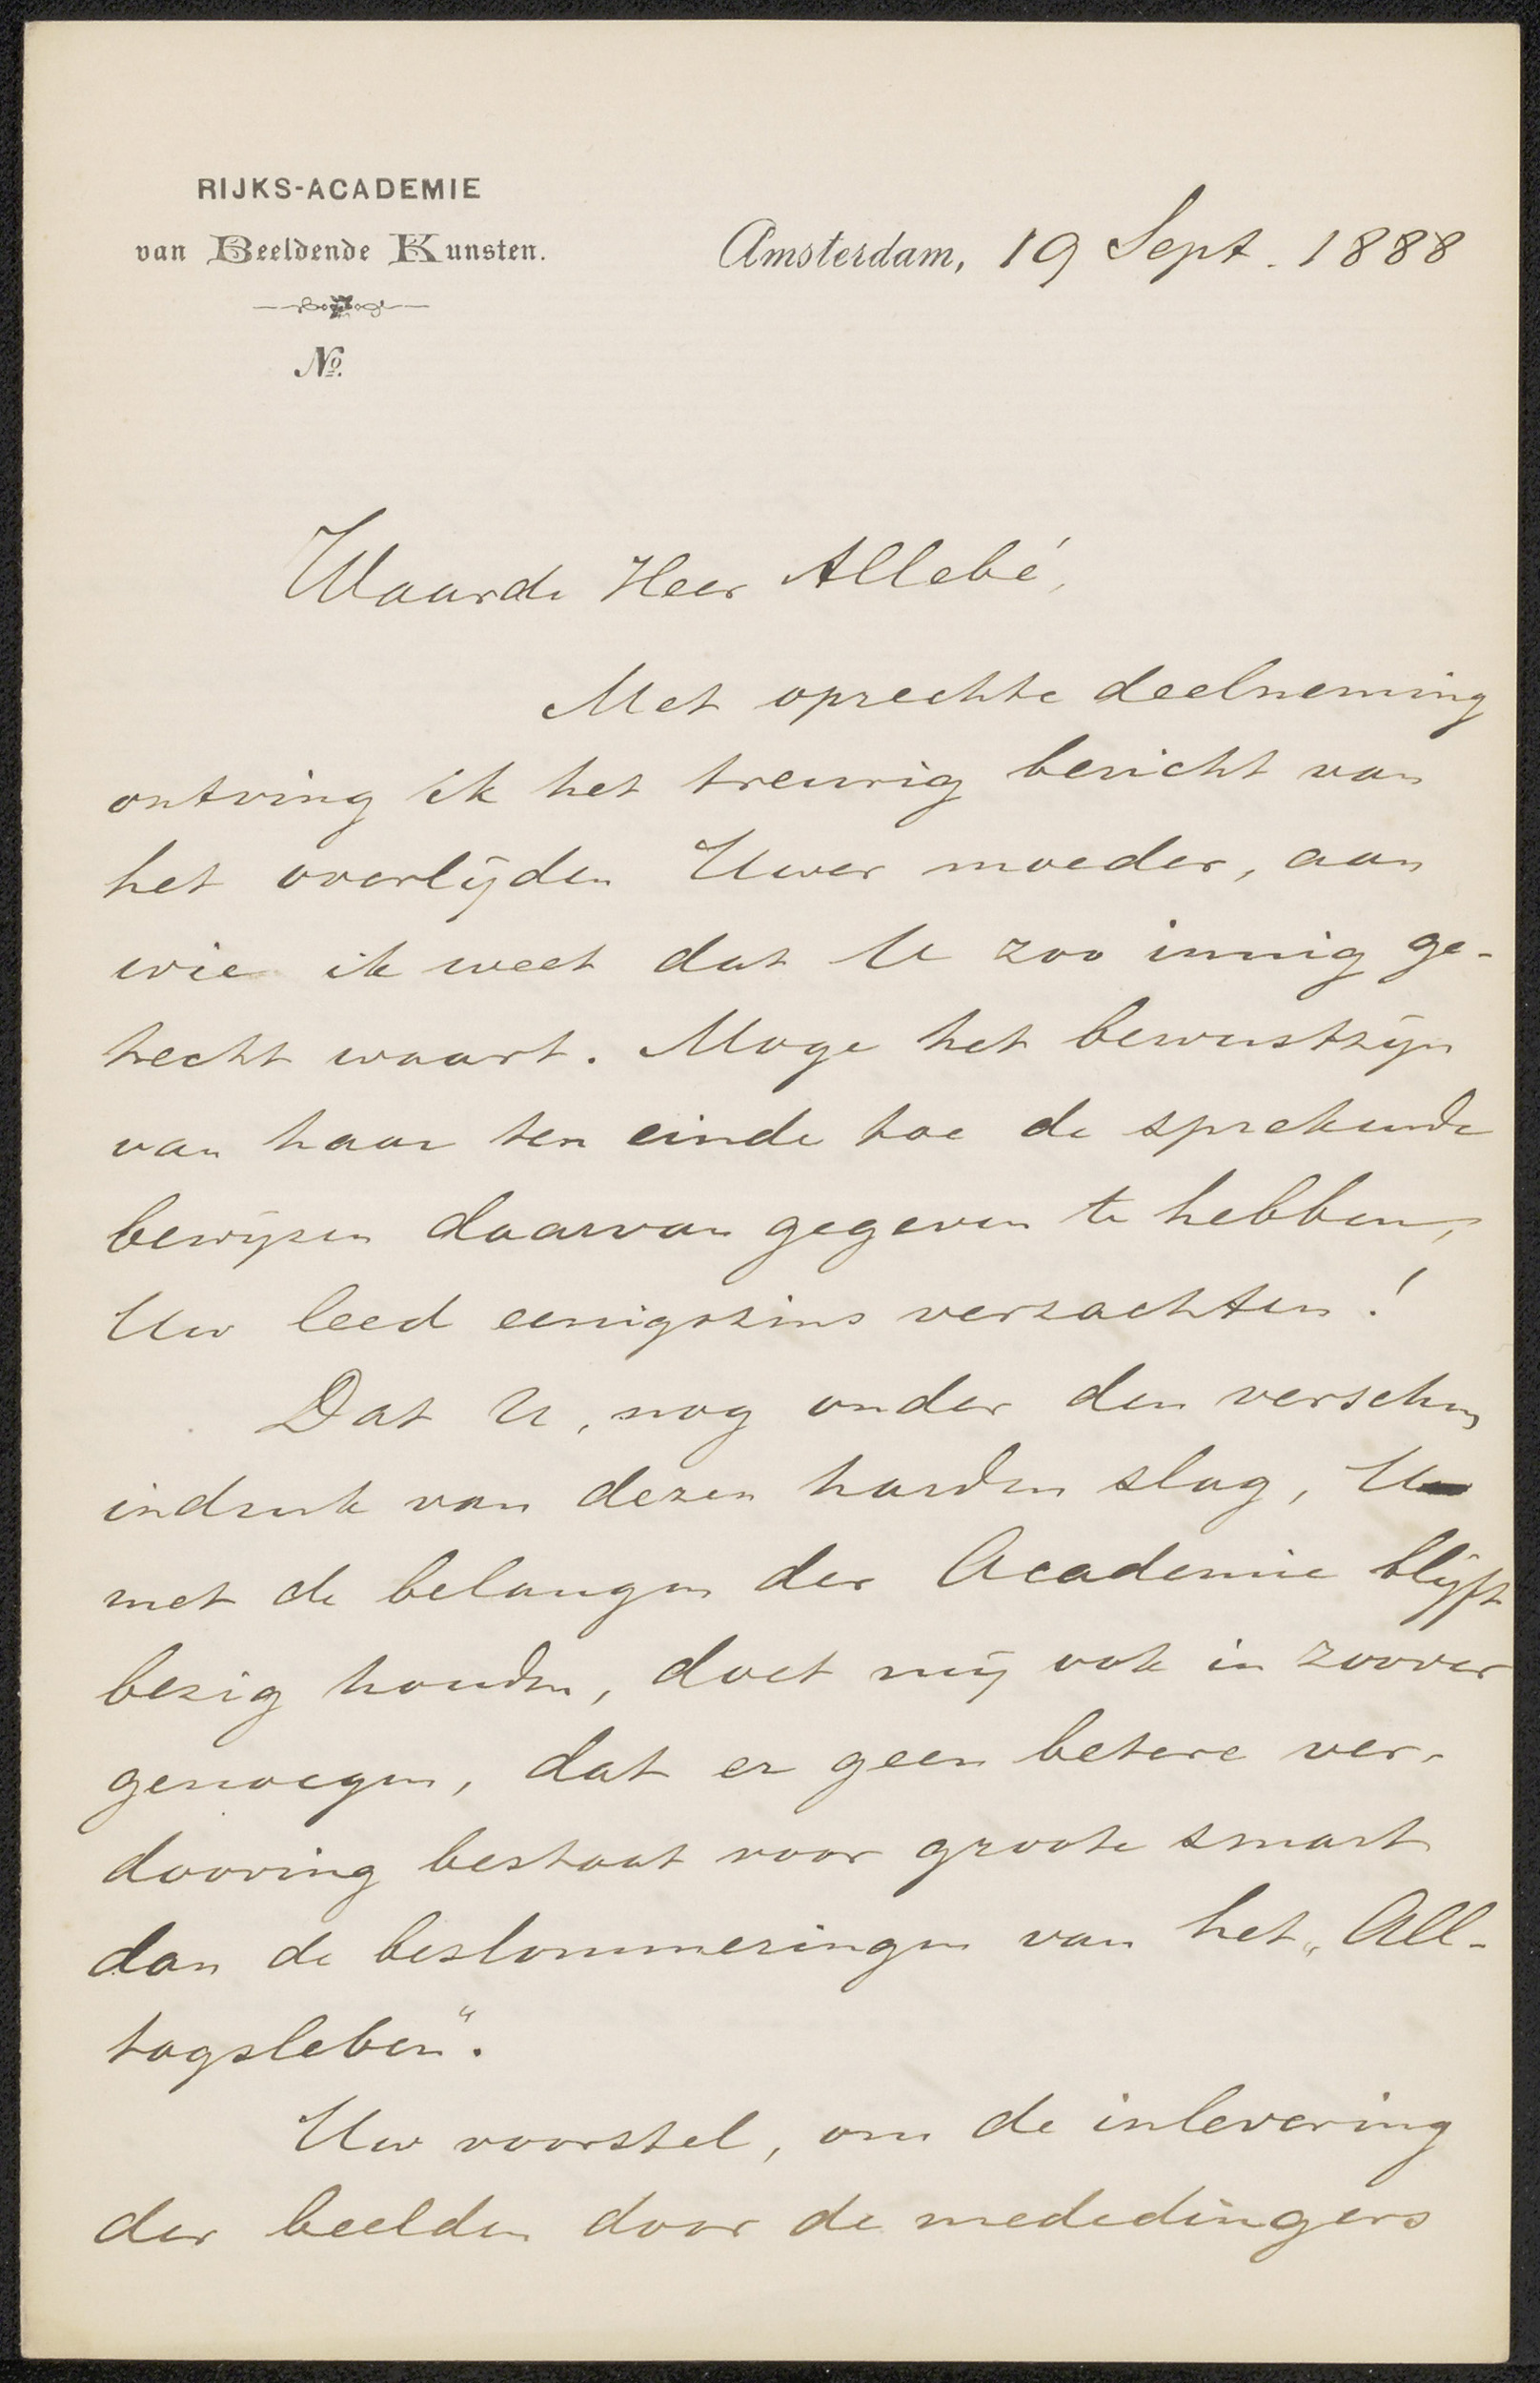 RIJKS-ACADEMIE
van Beeldende Kunsten.
Amsterdam, 19 Sept. 1888
No.
Waarde Heer Allebé,
Met oprechte deelneming
ontving ik het treurig bericht van
het overlijden Uwer moeder, aan
wie ik weet dat U zoo innig ge-
hecht waart. Moge het bewustzijn
van haar ten einde toe de sprekende
bewijzen daarvan gegeven te hebben,
Uw leed eenigszins verzachten!
Dat U, nog onder den verschen
indruk van dezen harden slag, U
met de belangen der Academie blijft
bezig houden, doet mij ook in zoover
genoegen, dat er geen betere ver-
dooving bestaat voor groote smart
dan de beslommeringen van het „All-
tagsleben".
Uw voorstel, om de inlevering
der beelden door de mededingers